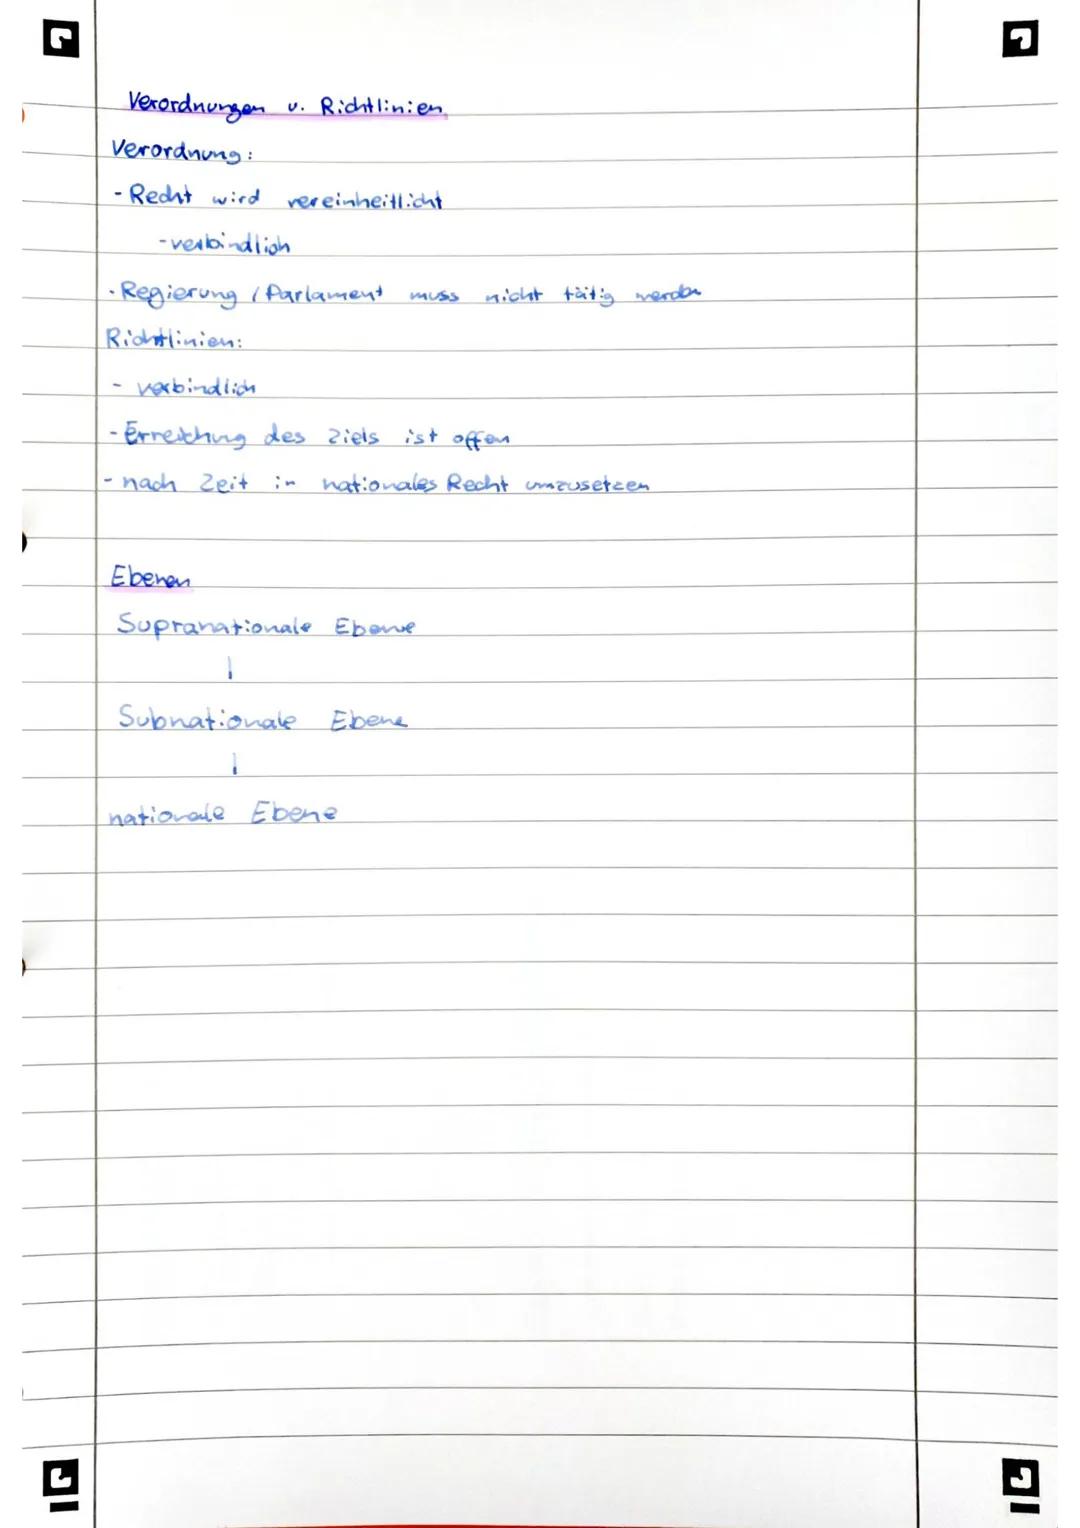 Verordnungen u. Richtlinien
Verordnung:
- Recht wird vereinheitlicht
- verbindlich
- Regierung / Parlament muss nicht tätig werden
Richtlinien:
- verbindlich
- Erreichung des Ziels ist offen
- nach Zeit in nationales Recht umzusetzen
Ebenen
Supranationale Ebene
Subnationale Ebene
nationale Ebene